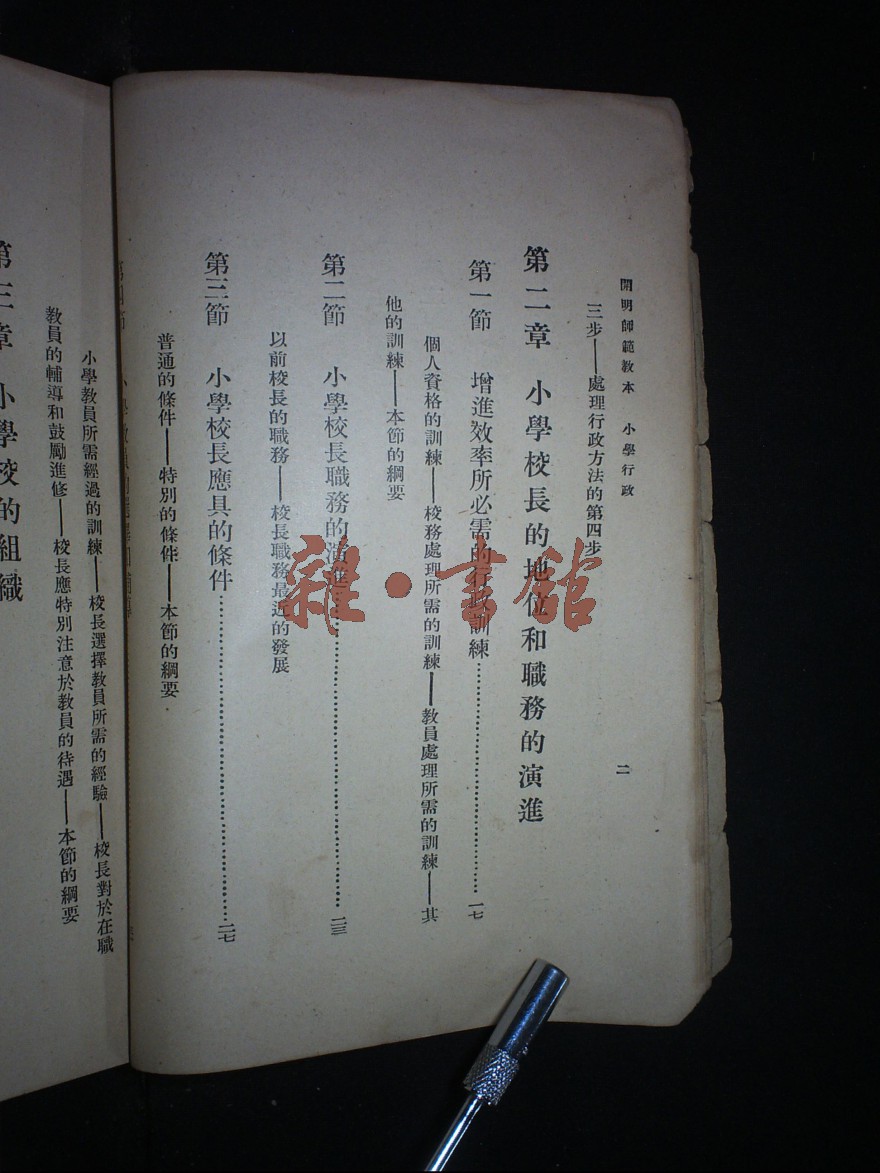 開明師範教本 小學行政
二
三步——處理行政方法的第四步
第二章 小學校長的地位和職務的演進
第一節 增進效率所必需的行政訓練……一七
個人資格的訓練——校務處理所需的訓練——教員處理所需的訓練——其
他的訓練——本節的綱要
第二節 小學校長職務的演進……二三
以前校長的職務——校長職務最近的發展
第三節 小學校長應具的條件……二七
普通的條件——特別的條件——本節的綱要
第四節
小學教員所需經過的訓練——校長選擇教員所需的經驗——校長對於在職
教員的輔導和鼓勵進修——校長應特別注意於教員的待遇——本節的綱要
第三章 小學校的組織
雜·書館